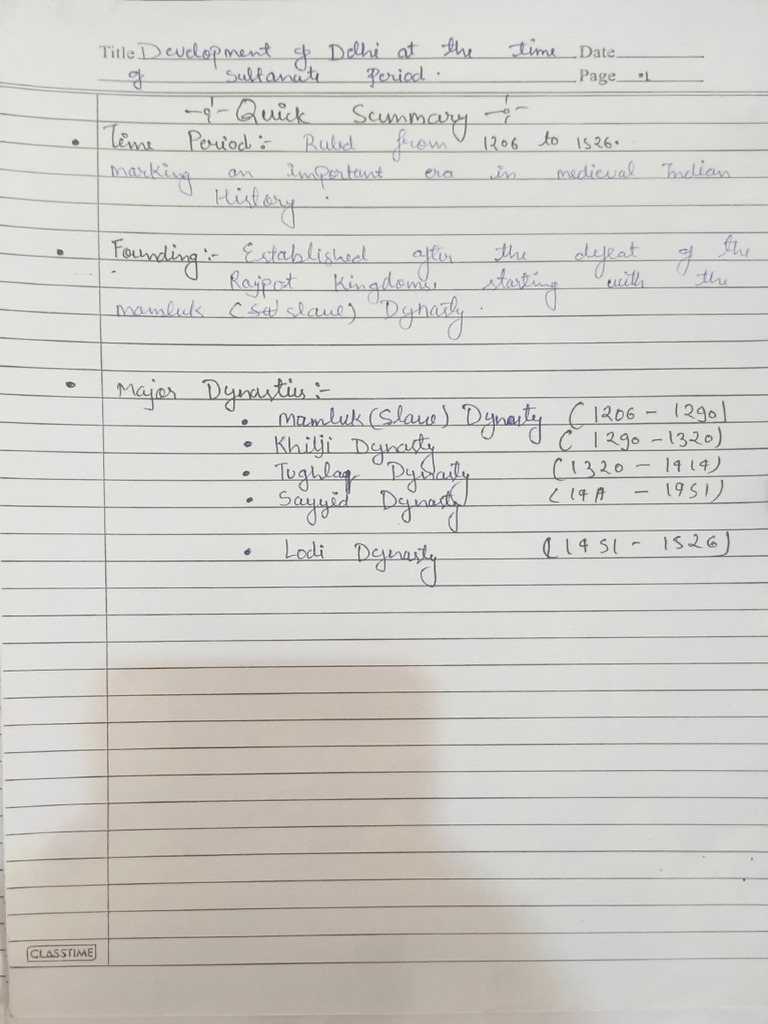 Title Development of Delhi at the time Date
of Sultanate Period. Page 1
Quick Summary
• Time Period:- Ruled from 1206 to 1526.
marking an important era in medieval Indian
History.
• Founding:- Established after the defeat of the
Rajput Kingdoms, starting with the
mamluk (slave) Dynasty.
• Major Dynasties:-
• Mamluk (Slave) Dynasty (1206 - 1290)
• Khilji Dynasty (1290 - 1320)
• Tughlaq Dynasty (1320 - 1414)
• Sayyid Dynasty ( - 1451)
• Lodi Dynasty (1451 - 1526)
CLASSTIME